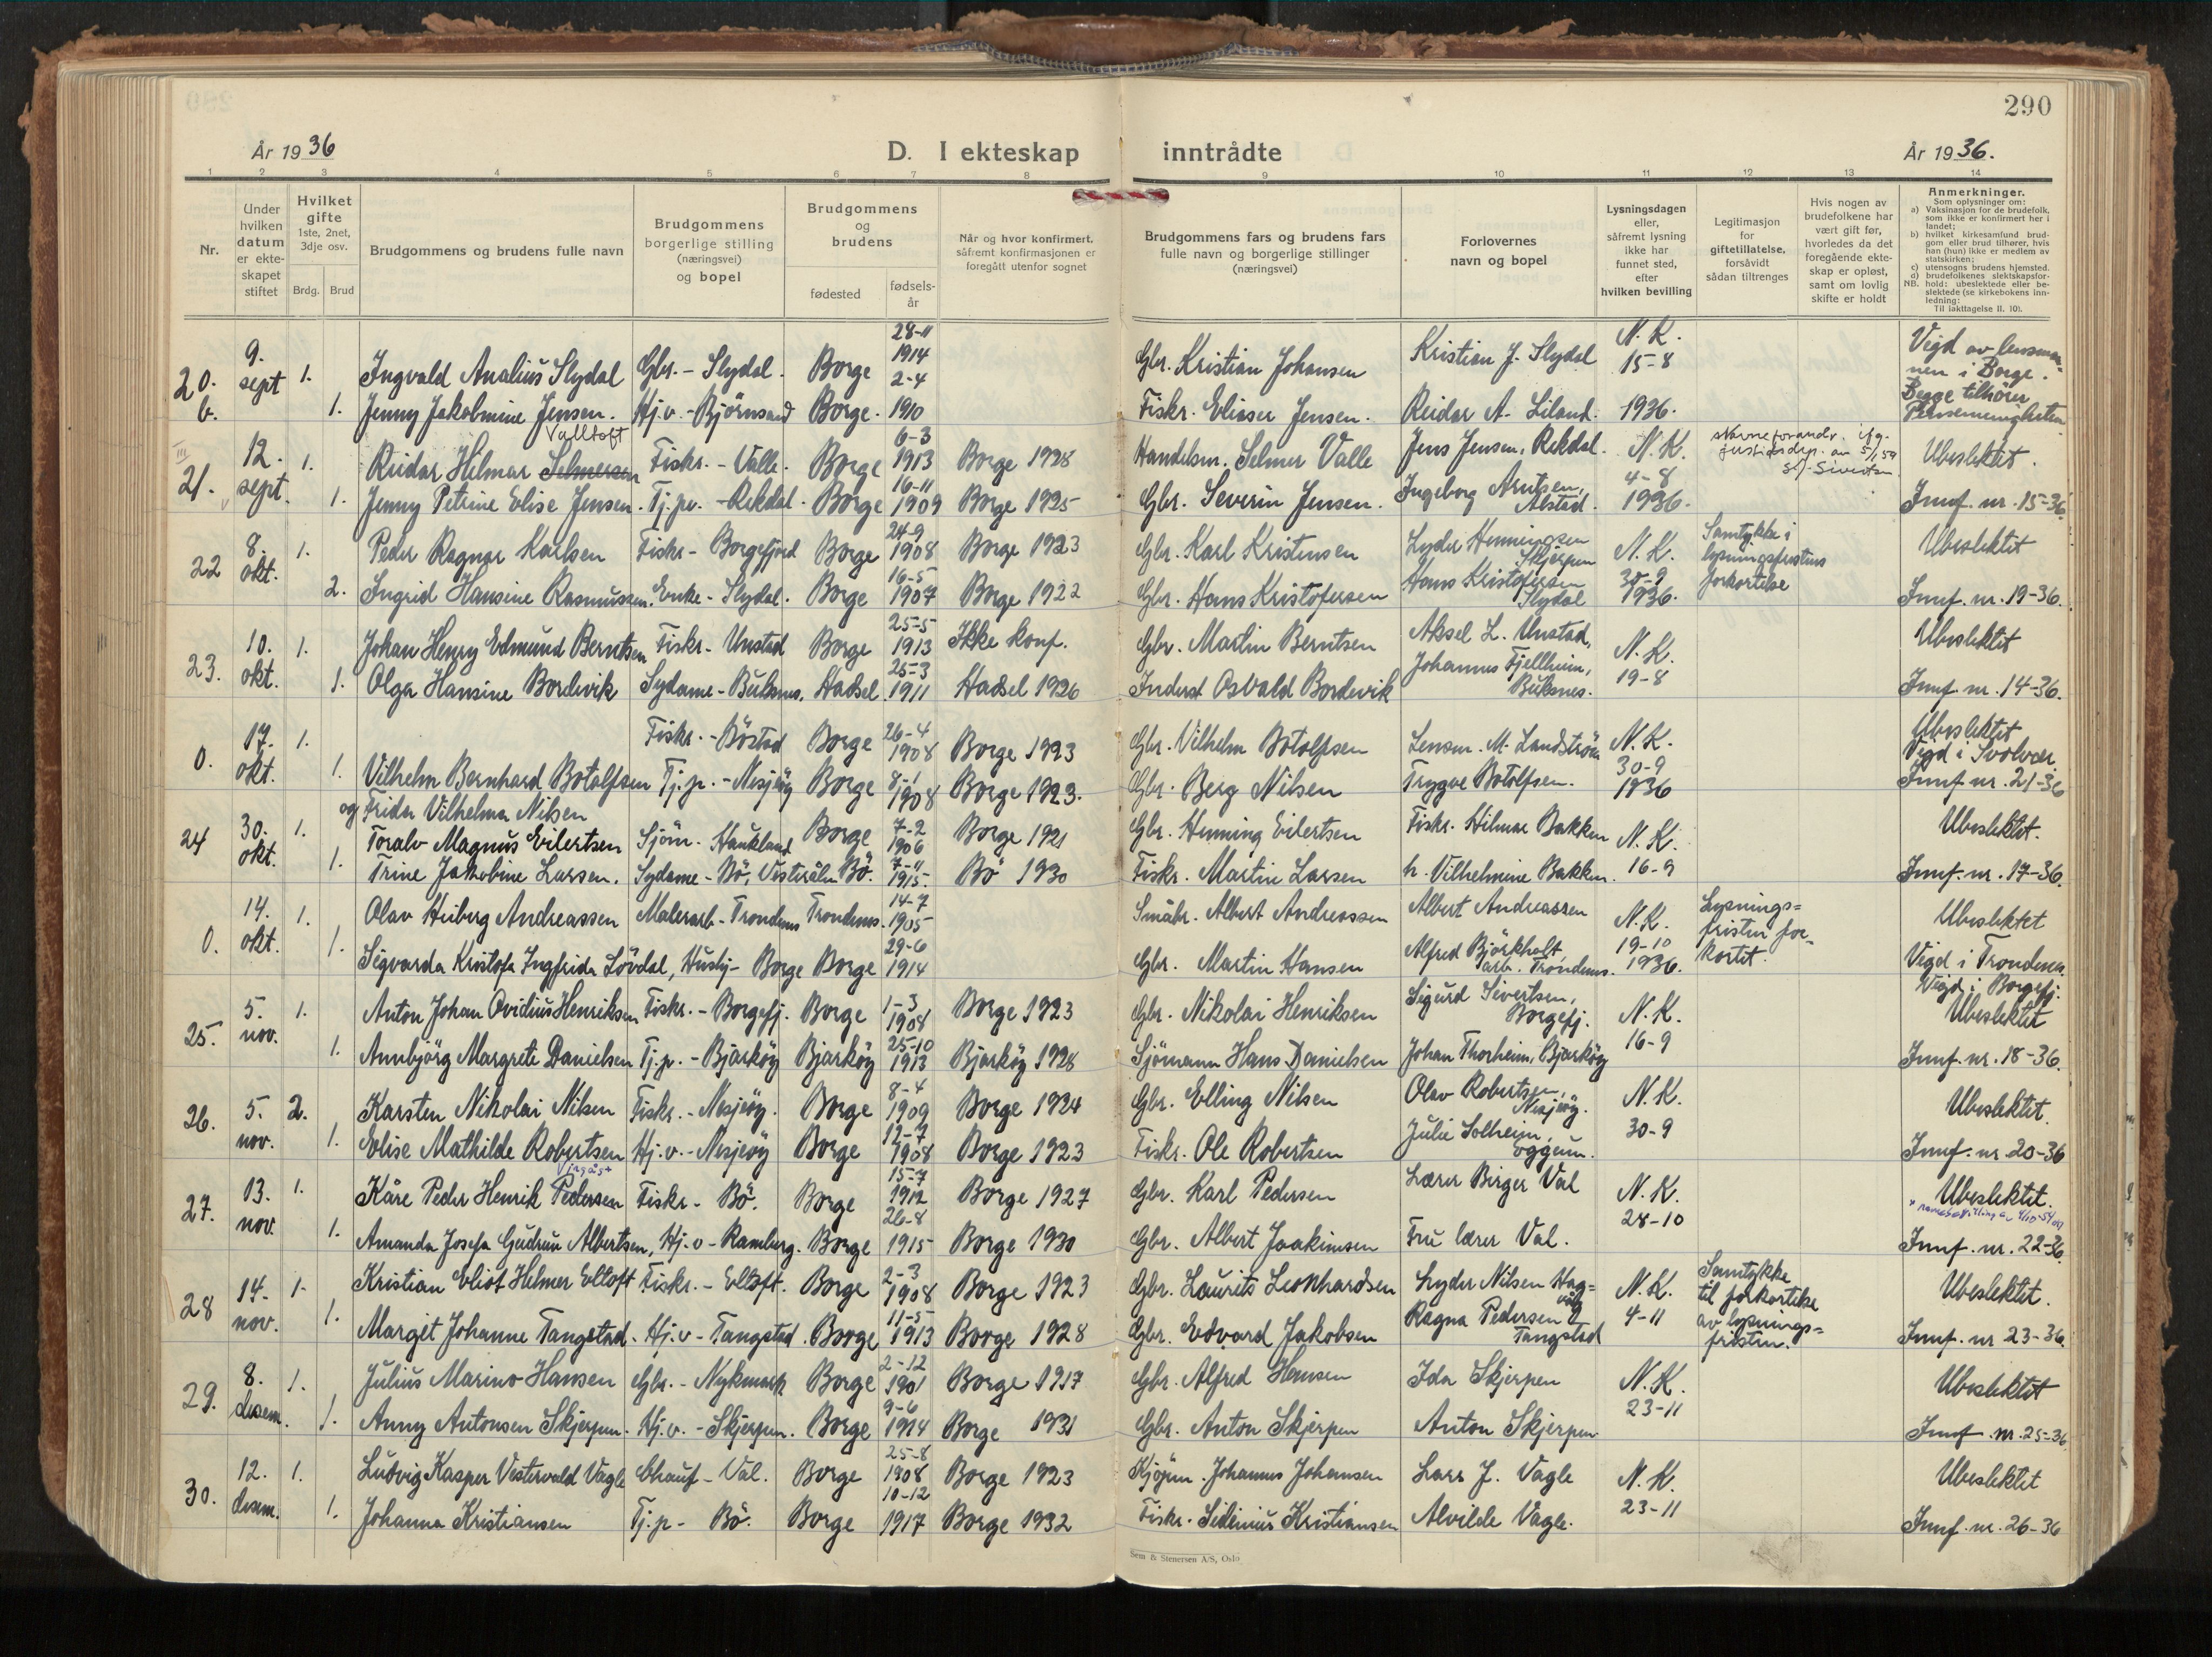 290
År 1936
D. I ekteskap inntrådte
År 1936.
1 2 3 4 5 6 7 8 9 10 11 12 13 14
Nr.
Under hvilken datum er ekteskapet stiftet
Hvilket gifte 1ste, 2net, 3dje osv.
Brdg. Brud
Brudgommens og brudens fulle navn
Brudgommens borgerlige stilling (næringsvei) og bopel
Brudgommens og brudens
fødested
fødselsår
Når og hvor konfirmert, såfremt konfirmasjonen er foregått utenfor sognet
Brudgommens fars og brudens fars fulle navn og borgerlige stillinger (næringsvei)
Forlovernes navn og bopel
Lysningsdagen eller, såfremt lysning ikke har funnet sted, efter hvilken bevilling
Legitimasjon for giftetillatelse, forsåvidt sådan tiltrenges
Hvis nogen av brudefolkene har vært gift før, hvorledes da det foregående ekteskap er opløst, samt om lovlig skifte er holdt
Anmerkninger.
Som oplysninger om:
a) Vaksinasjon for de brudefolk, som ikke er konfirmert her i landet;
b) hvilket kirkesamfund brudgom eller brud tilhører, hvis han (hun) ikke er medlem av statskirken;
c) utensogns brudens hjemsted.
d) brudefolkenes slektskapsforhold: ubeslektede eller beslektede (se kirkebokens innledning:
NB.
Til iakttagelse II. 10).
20. b. 9. sept 1. Ingvald Analius Slydal Gbr. - Slydal. Borge 28-11 1914 Gbr. Kristian Johansen Kristian J. Slydal N. K. 15-8 Vigd av lensmannen i Borge.
1. Jenny Jakobmine Jensen. Hj.v. - Björnsand Borge. 2-4 1910 Fiskr. Eliaser Jensen. Reidar A. Liland. 1936. Begge tilhörer
21. 12. sept. 1. Reidar Hilmar Selmersen Valltoft Fiskr. - Valle. Borge 6-3 1913 Borge 1928 Handelsm. Selmer Valle Jens Jensen, Rekdal. N. K. 4-8 Navneforandr. ifg. justisdep. av 5/1 59 Sivertsen Ubeslektet.
1. Jenny Petrine Elise Jensen. Tj.p. - Rekdal. Borge 16-11 1909 Borge 1925 Gbr. Severin Jensen. Ingeborg Arntsen, Alstad. 1936. Innf. nr. 15-36
22 8. okt. 1. Peder Ragnar Karlsen Fiskr - Borgefjord Borge 24-9 1908 Borge 1923 Gbr. Karl Kristensen Lyder Henningsen Skjerpen N. K. 30-9 1936. Samtykke i lysningsfristens forkortelse Ubeslektet
2. Ingrid Hansine Rasmussen. Enke - Slydal. Borge 16-5 1907 Borge 1922 Gbr. Hans Kristofersen Hans Kristofersen Slydal Innf. nr. 19-36.
23. 10. okt. 1. Johan Henry Edmund Berntsen Fiskr - Unstad Borge 25-5 1913 Ikke konf. Gbr. Martin Berntsen Aksel L. Unstad, N. K. 19-8 Ubeslektet
1. Olga Hansine Bordevik Sydame - Buksnes. Hadsel 25-3 1911 Hadsel 1926 Inderst Osvald Bordevik Johannes Fjellheim, Buksnes. Innf. nr. 14-36.
0. 17. okt. 1. Fiskr. - Böstad Borge 26-4 1908 Borge 1923 Gbr. Vilhelm Botolfsen Lensm. M. Landström N. K. 30-9 1936 Ubeslektet Vigd i Svolvær
1. Vilhelm Bernhard Botolfsen og Frida Vilhelma Nilsen Tj.p. - Nesjeöy Borge 8-1 1908 Borge 1923. Gbr. Berg Nilsen Trygve Botolfsen. Innf nr. 21-36
24 30. okt. 1. Toralv Magnus Eilertsen Sjöm. Haukland Borge 7-2 1906 Borge 1921 Gbr. Henning Eilertsen Fiskr. Hilmar Bakken N. K. 16-9 Ubeslektet.
1. Trine Jakobine Larsen. Sydame - Bö, Vesterålen Bö. 7-11 1915. Bö 1930 Fiskr. Martin Larsen h. Vilhelmine Bakken. Innf. nr. 17-36.
0. 14. okt. 1. Olav Heiberg Andreassen Malerarb - Trondenes Trondenes. 14-7 1905 Småbr. Albert Andreassen Albert Andreassen N. K. 19-10 1936. Lysningsfristen forkortet Ubeslektet
1. Sigvarda Kristofa Ingfrida Lövdal, Hushj - Borge Borge 29-6 1914 Gbr. Martin Hansen Alfred Björkholt, arb. Trondenes. Vigd i Trondenes.
25. 5. nov. 1. Anton Johan Ovidius Henriksen Fiskr. - Borgefj. Borge 1-3 1908 Borge 1923 Gbr. Nikolai Henriksen Sigurd Sivertsen, Borgefj. N. K. 16-9 Vigd i Borgefj. Ubeslektet
1. Annbjörg Margrete Danielsen Tj.p. - Bjarköy Bjarköy 25-10 1913 Bjarköy 1928 Sjömann Hans Danielsen Johan Thorheim, Bjarköy Innf. nr. 18-36.
26. 5. nov. 2. Karsten Nikolai Nilsen Fiskr. - Nesjeöy. Borge 8-4 1909 Borge 1924 Gbr. Elling Nilsen Olav Robertsen, Nesjeöy. N. K. 30-9 Ubeslektet.
1. Elise Mathilde Robertsen Hj.v. - Nesjeöy Borge 12-7 1908 Borge 1923 Fiskr. Ole Robertsen Julie Solheim, Eggum. Innf. nr. 20-36
27. 13. nov. 1. Kåre Peder Henrik Pedersen Fiskr - Bö. Borge 15-7 1912 Borge 1927 Gbr. Karl Pedersen Lærer Birger Val N. K. 28-10 Ubeslektet.
1. Amanda Josefa Gudrun Albertsen, Hj.v - Ramberg. Borge 26-8 1915 Borge 1930 Gbr. Albert Joakimsen Fru lærer Val. Innf. nr. 22-36
28 14. nov. 1. Kristian Eliot Helmer Eltoft Fiskr. - Eltoft. Borge 2-3 1908 Borge 1923 Gbr. Laurits Leonhardsen Lyder Nilsen N. K. 4-11 Samtykke til forkortelse av lysningsfristen. Ubeslektet.
1. Margit Johanne Tangstad. Hj.v - Tangstad. Borge 11-5 1913 Borge 1928 Gbr. Edvard Jakobsen Ragna Pedersen Tangstad Innf. nr 23-36.
29. 8. desem. 1. Julius Marino Hansen Gbr. - Nykmark Borge 2-12 1901 Borge 1917 Gbr. Alfred Hansen Ida Skjerpen N. K. 23-11 Ubeslektet
1. Anny Antonsen Skjerpen. Hj.v. - Skjerpen. Borge 9-6 1914 Borge 1931 Gbr. Anton Skjerpen Anton Skjerpen Innf. nr. 25-36
30. 12. desem. 1. Ludvig Kasper Vestervald Vagle Chauf - Val. Borge 25-8 1908 Borge 1923 Kjöpm. Johannes Johansen Lars J. Vagle N. K. 23-11 Ubeslektet
1. Johanna Kristiansen Tj.p - Bö. Borge 10-12 1917 Borge 1932 Fiskr. Sidenius Kristiansen Alvilde Vagle. Innf. nr. 26-36
Sem & Stenersen A/S, Oslo